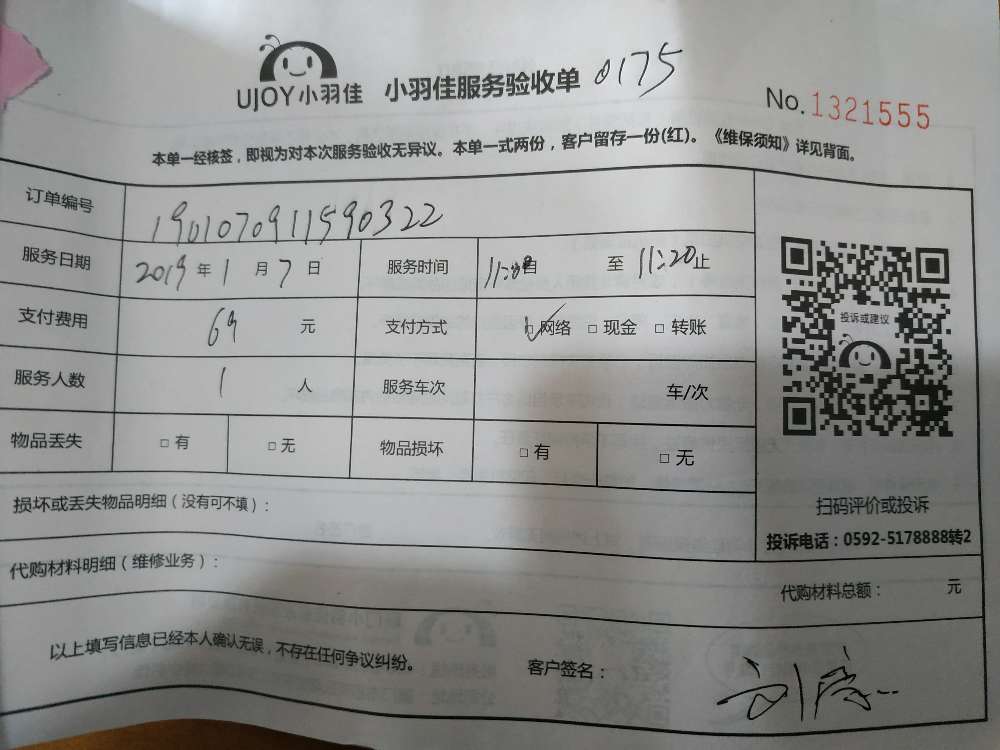 UJOY小羽佳 小羽佳服务验收单 0175
No.1321555
本单一经核签，即视为对本次服务验收无异议。本单一式两份，客户留存一份(红)。《维保须知》详见背面。
订单编号 1901070911590322
服务日期 2019年1月7日 服务时间 11:00自 至 11:20止
支付费用 69 元 支付方式 ☑网络 □现金 □转账
服务人数 1 人 服务车次 车/次
物品丢失 □有 □无 物品损坏 □有 □无
投诉或建议
扫码评价或投诉
投诉电话：0592-5178888转2
损坏或丢失物品明细（没有可不填）：
代购材料明细（维修业务）：
代购材料总额： 元
以上填写信息已经本人确认无误，不存在任何争议纠纷。
客户签名：